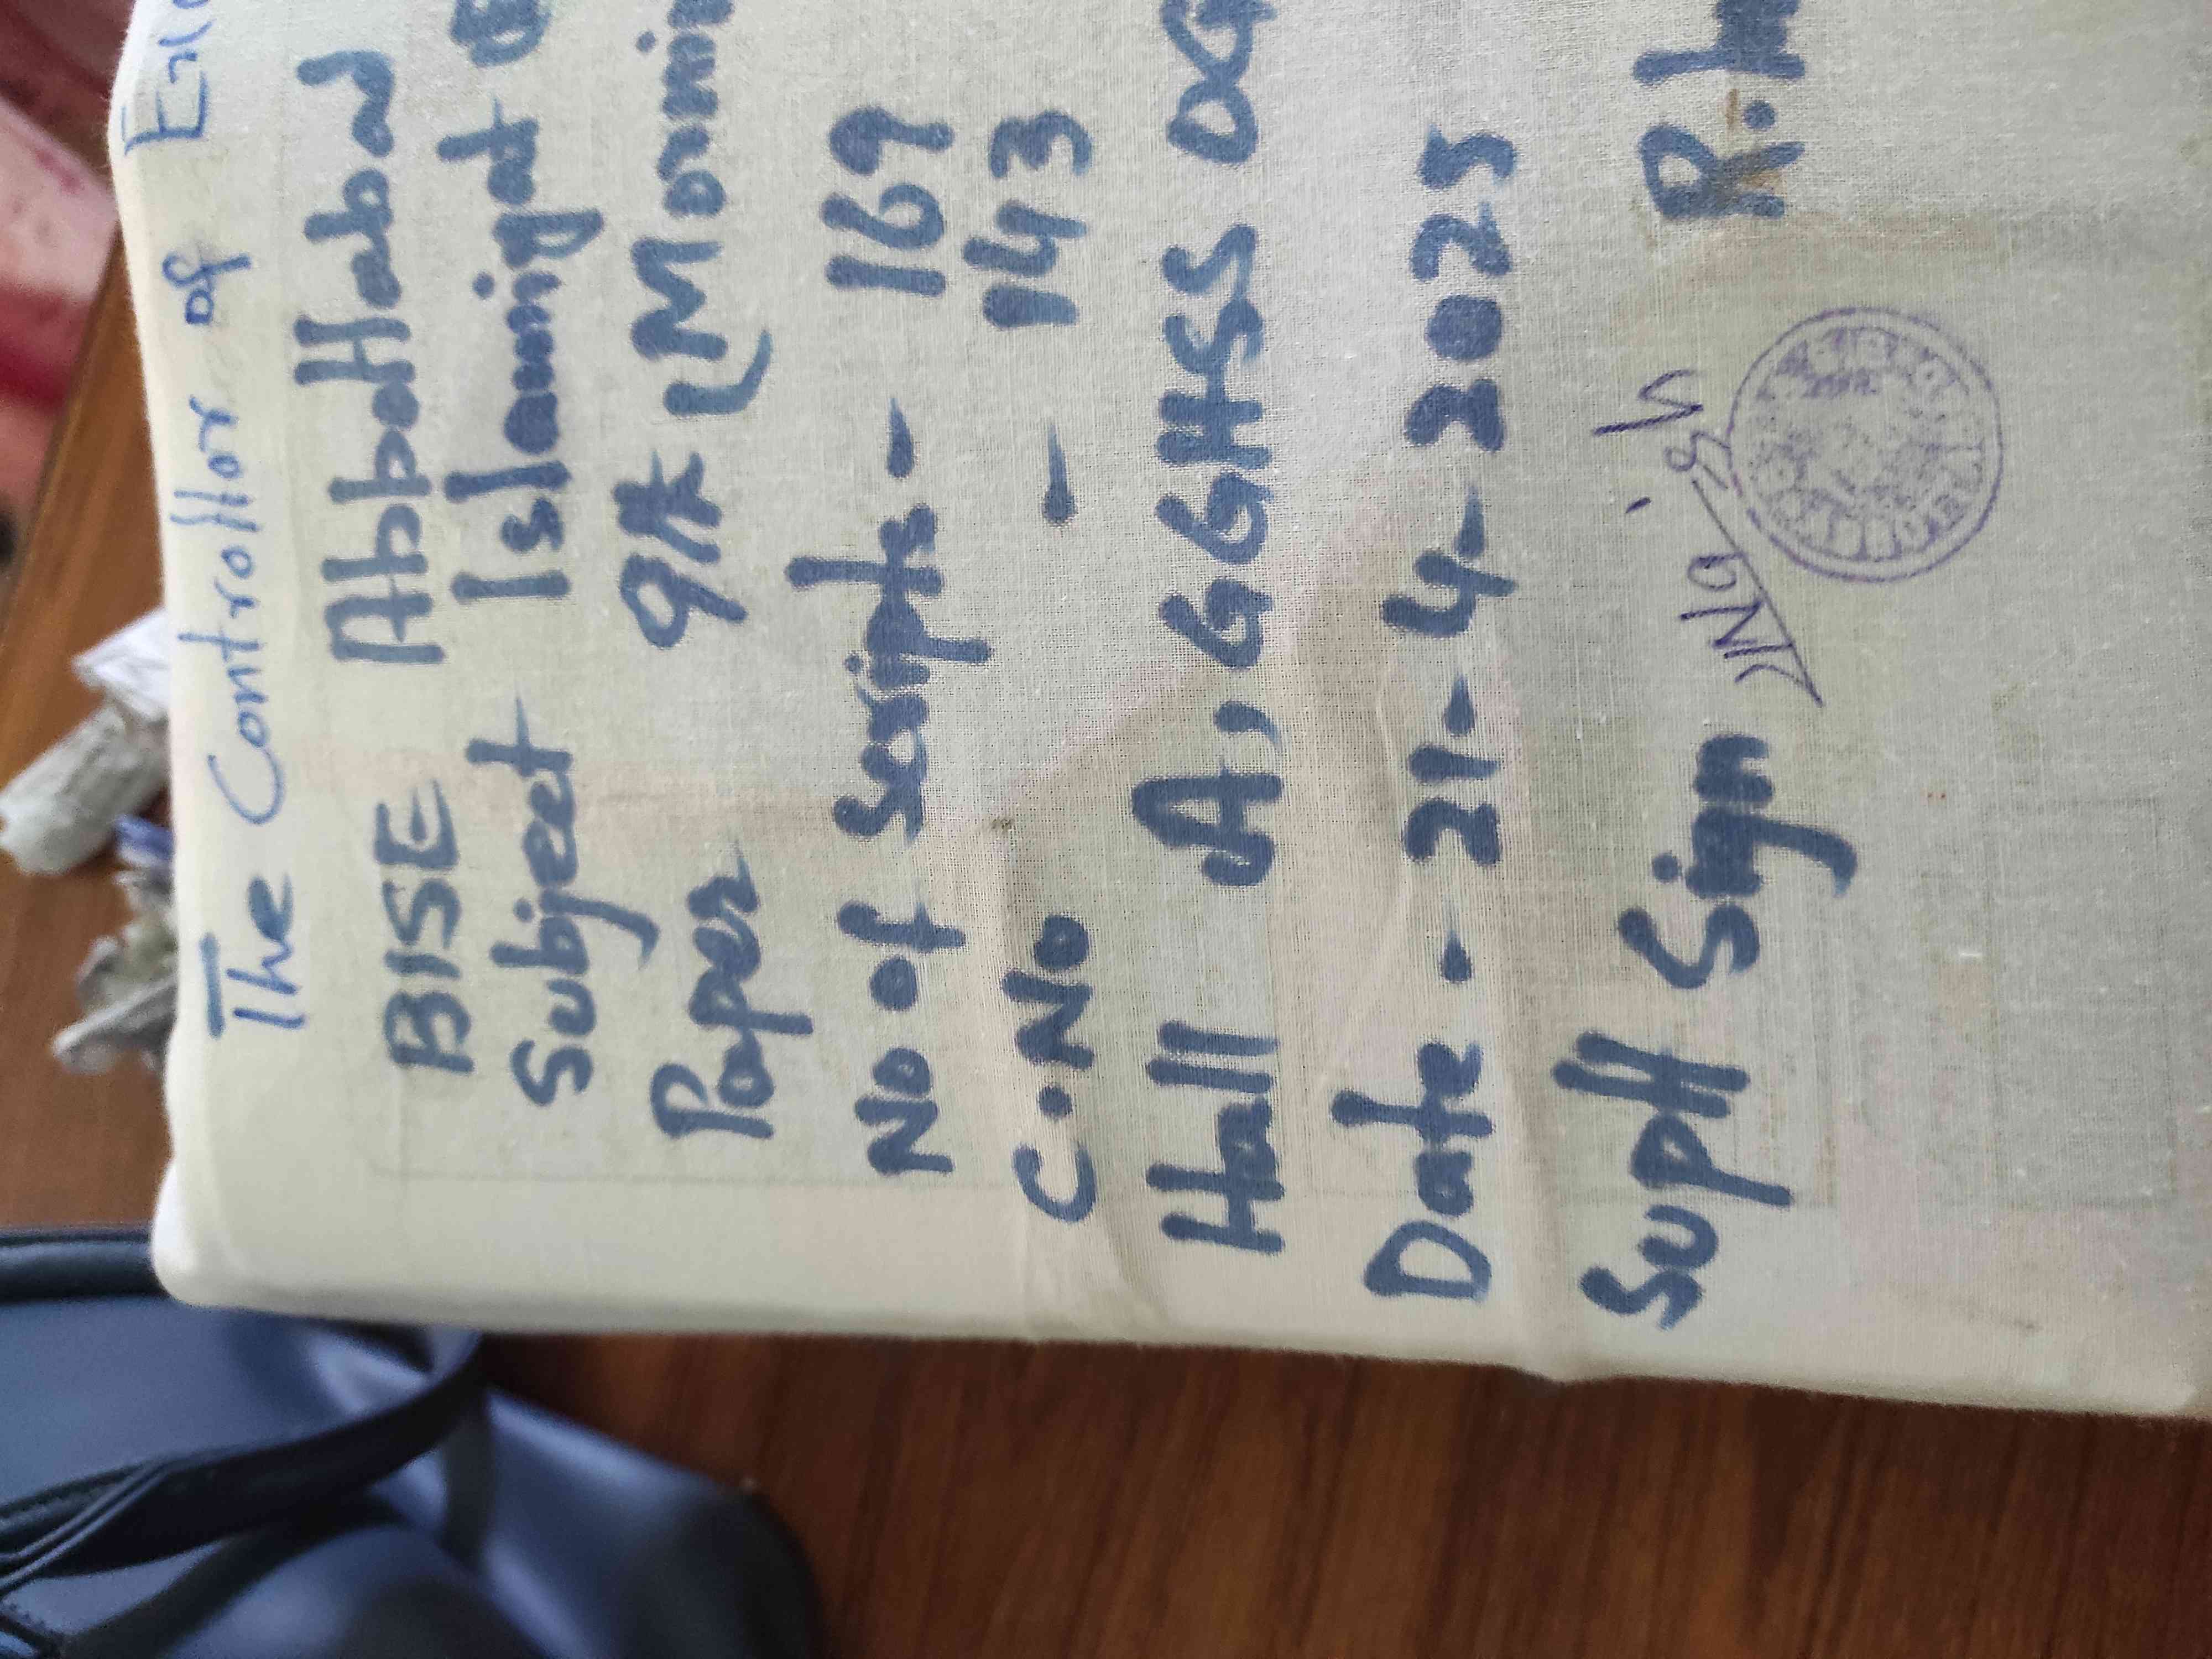 The Controller of
BISE Abbottabad
Subject - Islamiyat
Paper 9th (Morni
No of Scripts - 169
C.No - 143
Hall A, GGHSS
Date - 21-4-2025
Supdt Sign R.I